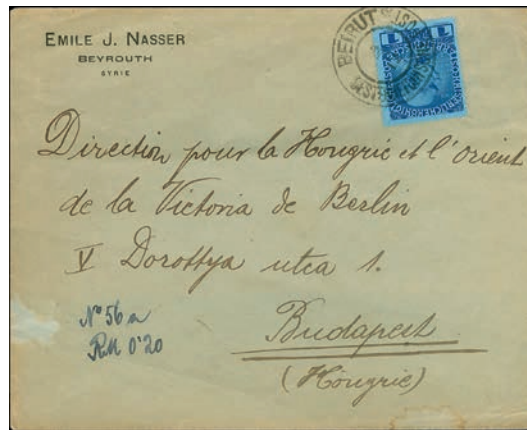 EMILE J. NASSER
BEYROUTH
SYRIE
BEIRUT
1 1
Direction pour la Hongrie et l'Orient
de la Victoria de Berlin
V Dorottya utca 1.
Nº 56a
RM 0'20
Budapest
(Hongrie)